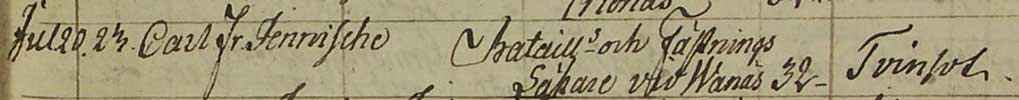 Jul 20. 23. Carl Fr. Tennische Bataill.s och Fästnings
Läkare vid Wanäs 32 - Tvinsot.